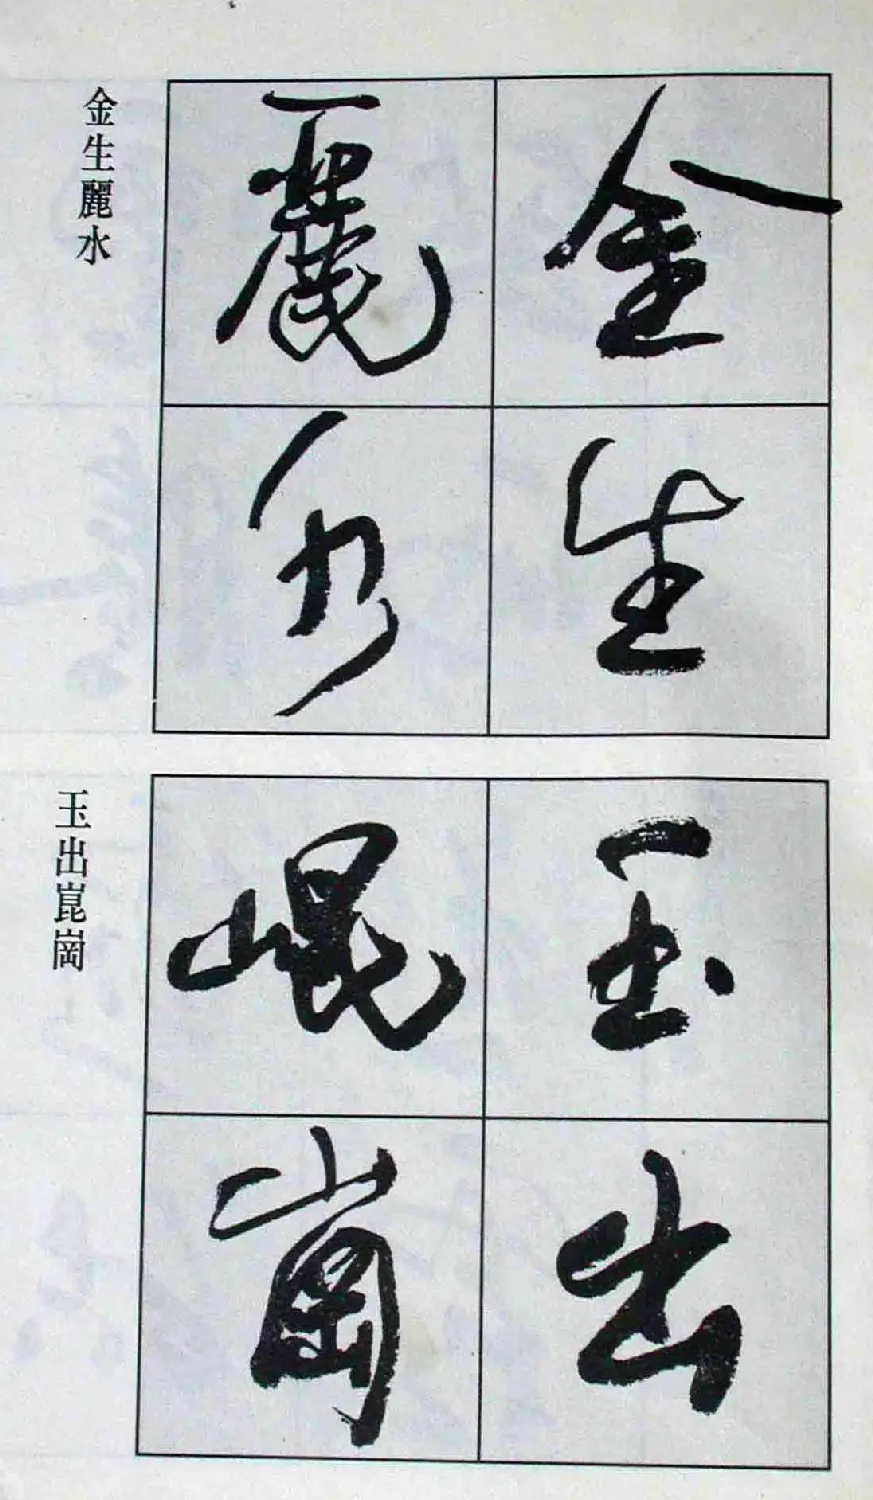 金生
麗水
金生麗水
玉出
崐崗
玉出崑崗